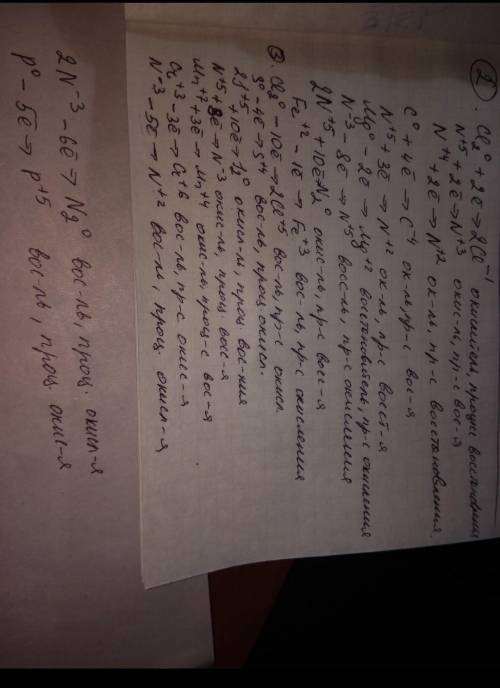 ② Cl₂⁰ + 2ē → 2Cl⁻¹ окислитель, процесс восстановления
N⁺⁵ + 2ē → N⁺³ окис-ль, пр-с вос-я
N⁺⁴ + 2ē → N⁺² ок-ль, пр-с восстановления.
C⁰ + 4ē → C⁻⁴ ок-ль, пр-с вос-я
N⁺⁵ + 3ē → N⁺² ок-ль, пр-с восст-я
Mg⁰ - 2ē → Mg⁺² восстановитель, пр-с окисления
N⁻³ - 8ē → N⁺⁵ восс-ль, пр-с окисления
2N⁺⁵ + 10ē → N₂⁰ окис-ль, пр-с вос-я
Fe⁺² - 1ē → Fe⁺³ вос-ль, пр-с окисления
③. Cl₂⁰ - 10ē → 2Cl⁺⁵ вос-ль, пр-с окисл.
S⁰ - 4ē → S⁺⁴ вос-ль, проц окисл.
2J⁺⁵ + 10ē → J₂⁰ окисл-ль, проц вос-ния
N⁺⁵ + 8ē → N⁻³ окис-ль, проц вос-я
Mn⁺⁷ + 3ē → Mn⁺⁴ окис-ль, проц-с вос-я
Cr⁺³ - 3ē → Cr⁺⁶ вос-ль, пр-с окис-я
N⁻³ - 5ē → N⁺² вос-ль, проц. окисл-я
2N⁻³ - 6ē → N₂⁰ вос-ль, проц. окисл-я
P⁰ - 5ē → P⁺⁵ вос-ль, проц окис-я